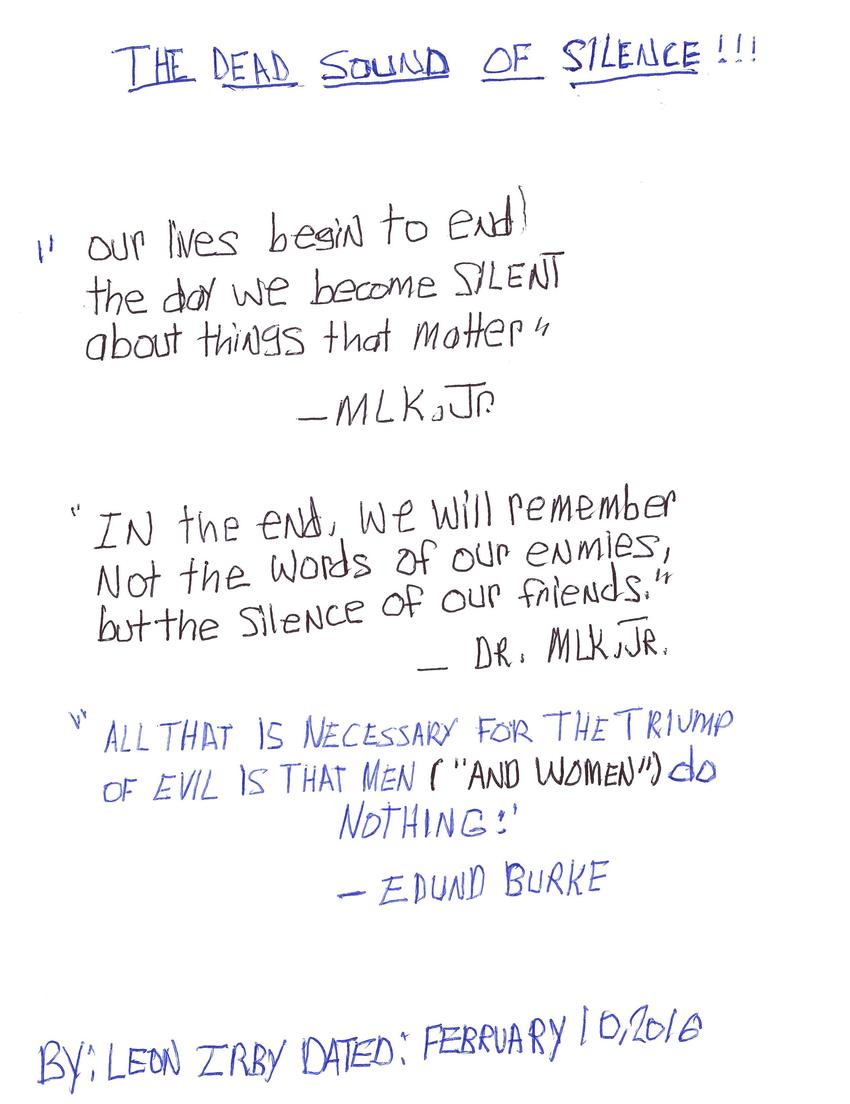 THE DEAD SOUND OF SILENCE!!!
" our lives begin to end)
the day we become SILENT
about things that matter"
—MLK, Jr.
"IN the end, we will remember
Not the words of our enmies,
but the silence of our friends."
— DR. MLK, JR.
"ALL THAT IS NECESSARY FOR THE TRIUMP
OF EVIL IS THAT MEN ("AND WOMEN") do
NOTHING!"
— EDUND BURKE
BY: LEON IRBY DATED: FEBRUARY 10, 2016